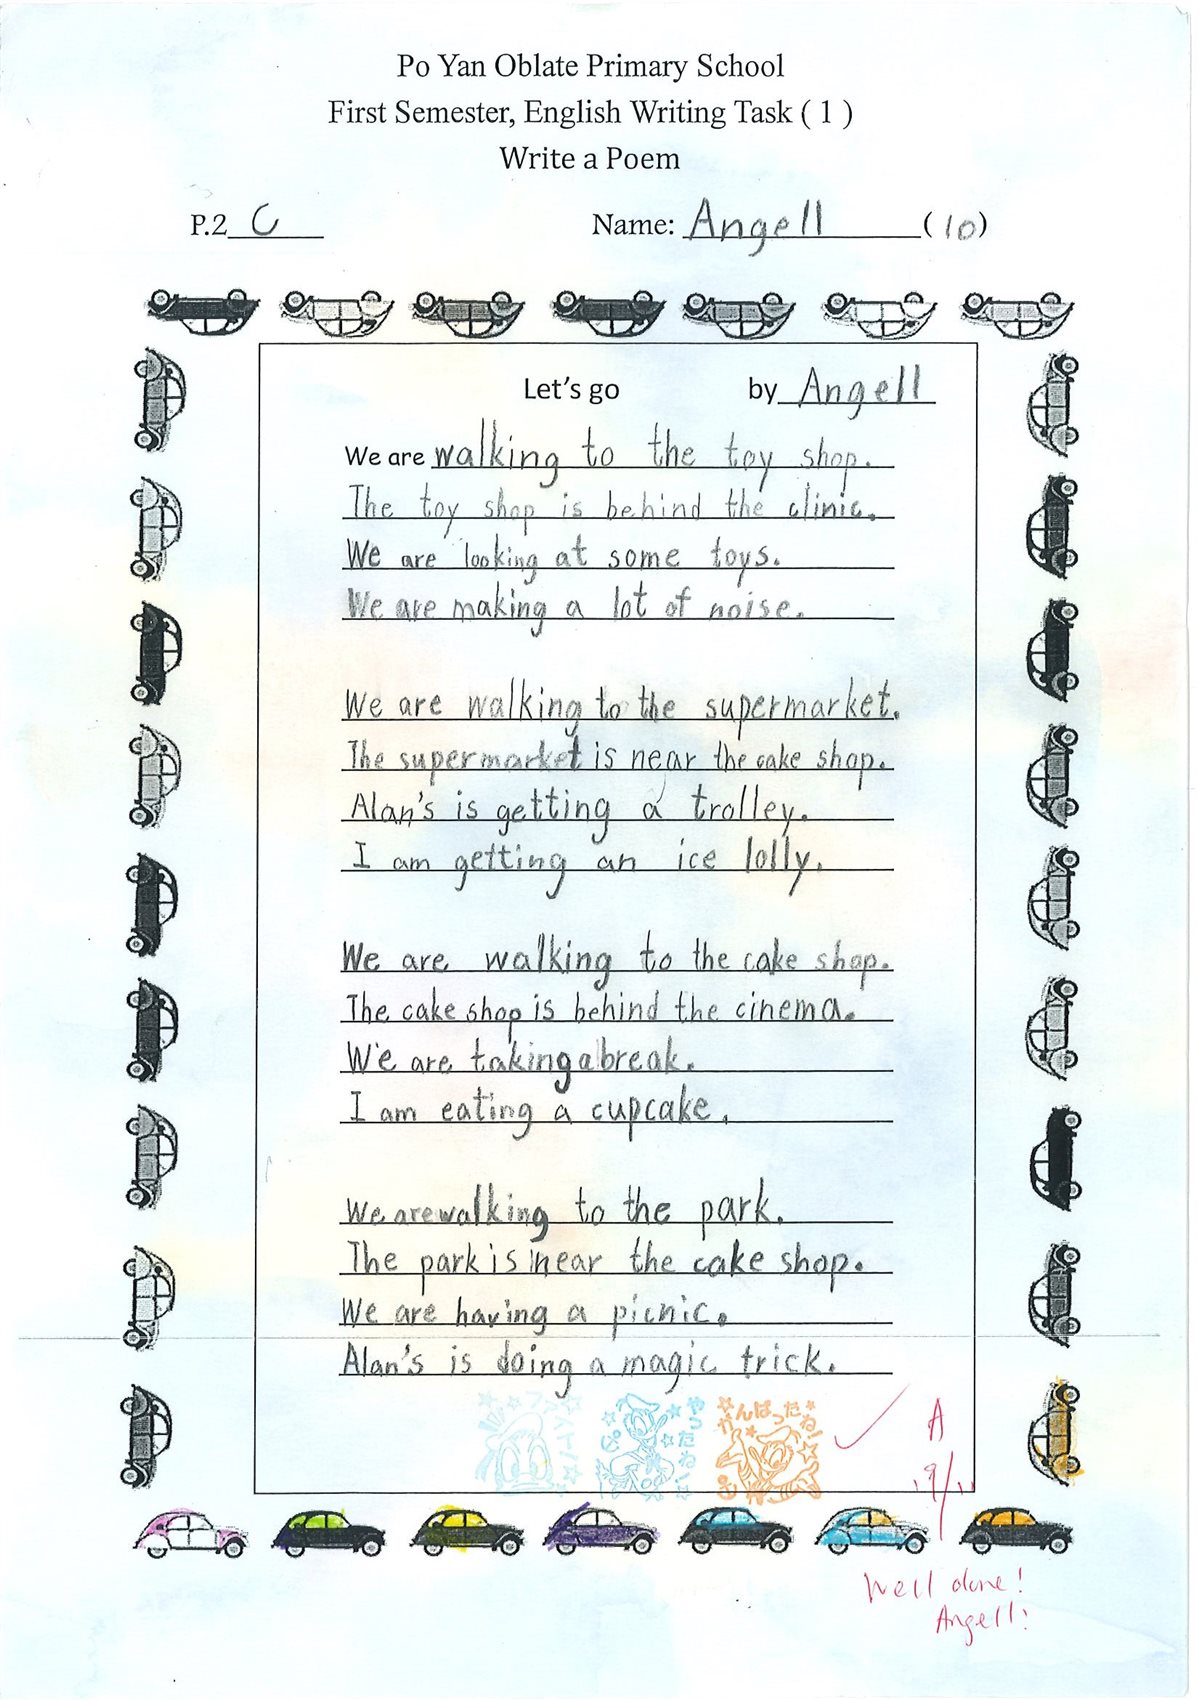 Po Yan Oblate Primary School
First Semester, English Writing Task ( 1 )
Write a Poem
P.2 C Name: Angell (10)
Let's go by Angell
We are walking to the toy shop.
The toy shop is behind the clinic.
We are looking at some toys.
We are making a lot of noise.
We are walking to the supermarket.
The supermarket is near the cake shop.
Alan's is getting a trolley.
I am getting an ice lolly.
We are walking to the cake shop.
The cake shop is behind the cinema.
We are taking a break.
I am eating a cupcake.
We are walking to the park.
The park is near the cake shop.
We are having a picnic.
Alan's is doing a magic trick.
ファイト!
やったね!
がんばったね!
A
19/11
Well done!
Angell!